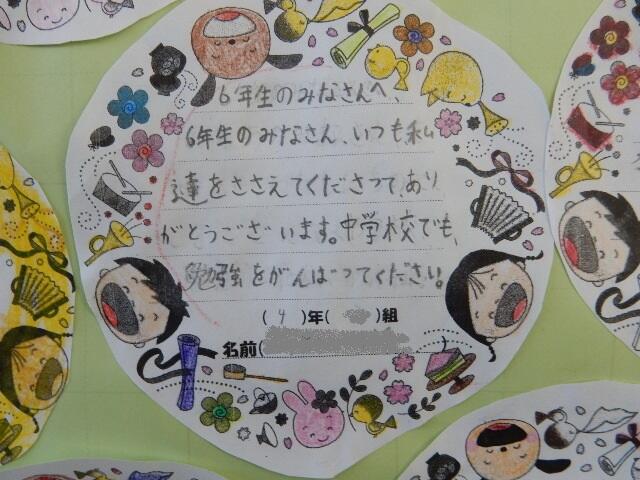 6年生のみなさんへ、
6年生のみなさん、いつも私
達をささえてくださって、あり
がとうございます。中学校でも、
勉強をがんばってください。
(4)年( )組
名前(